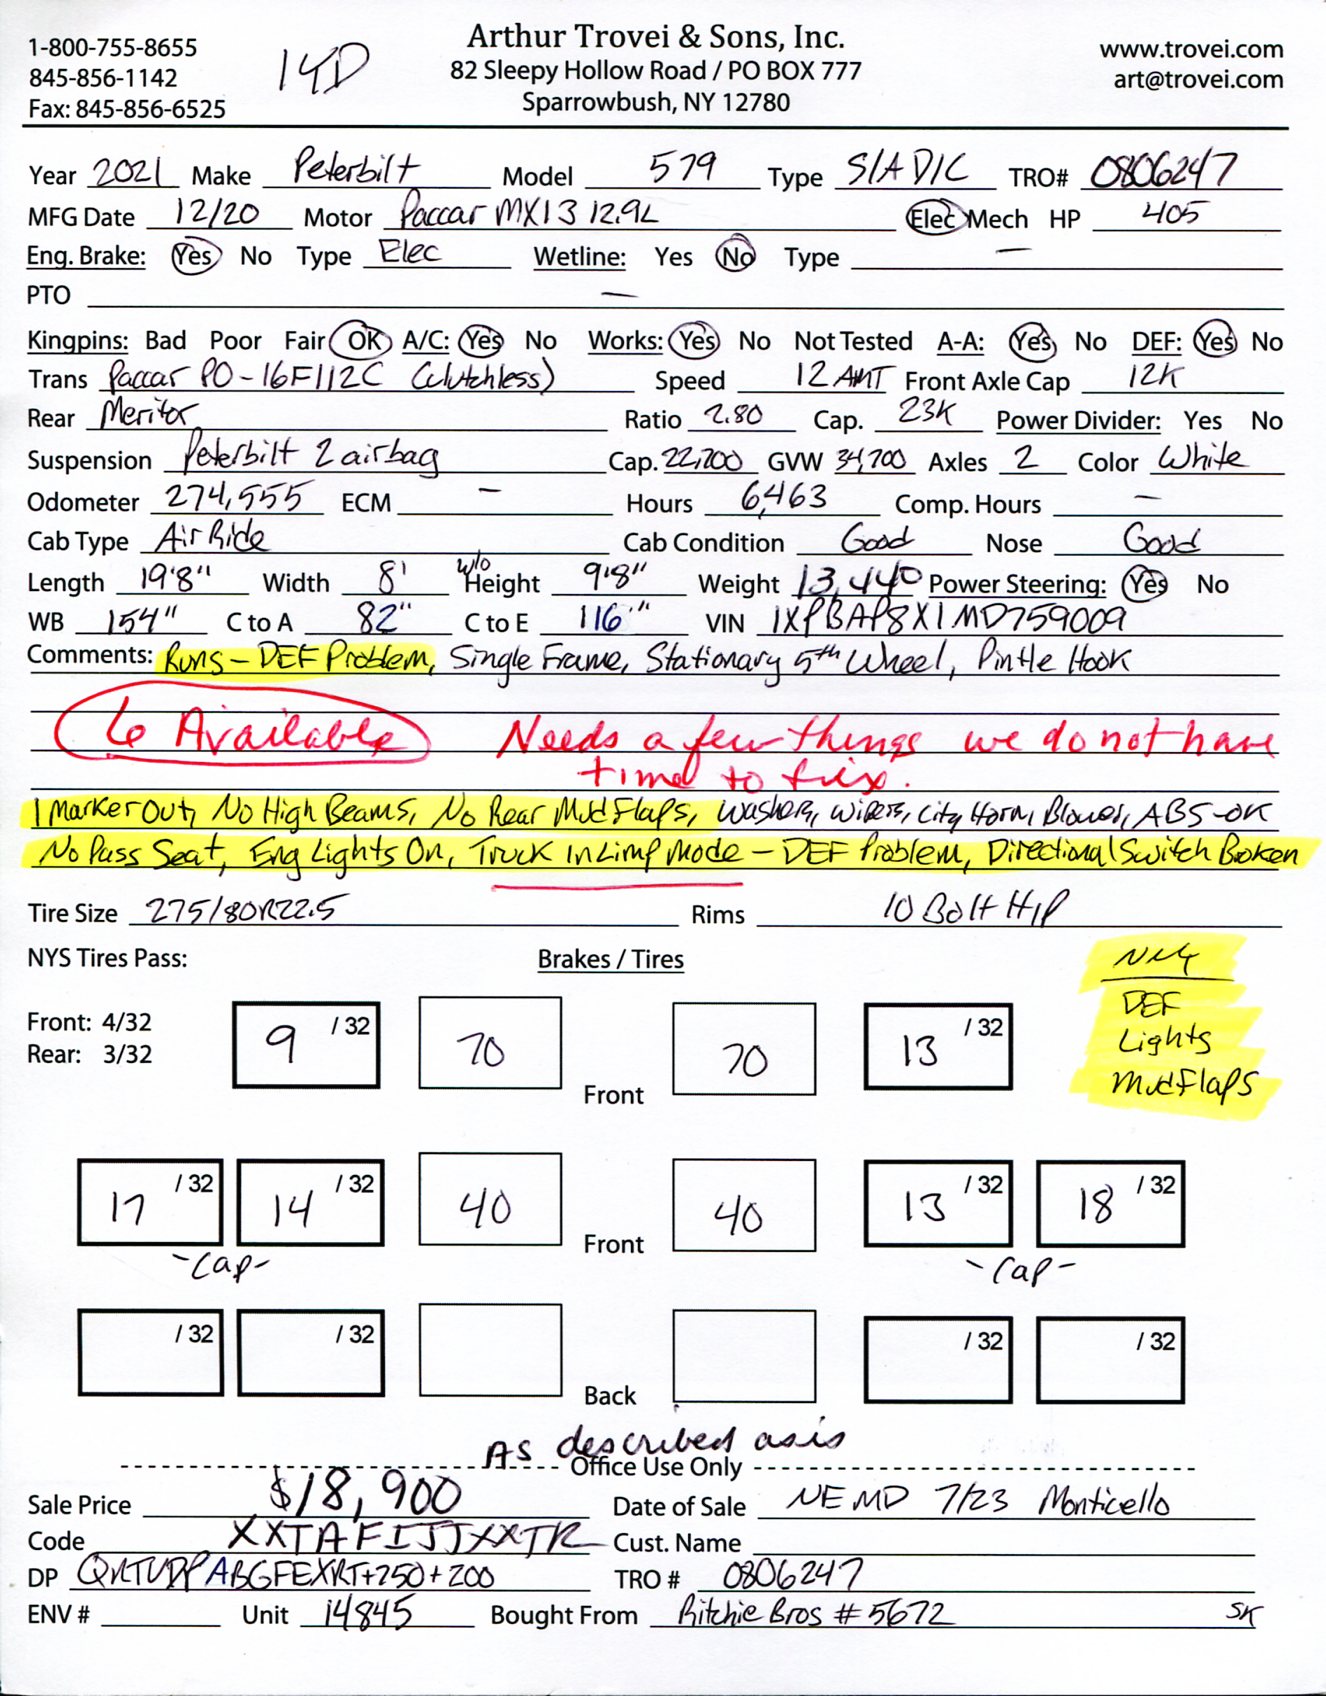 1-800-755-8655
845-856-1142
Fax: 845-856-6525
14D
Arthur Trovei & Sons, Inc.
82 Sleepy Hollow Road / PO BOX 777
Sparrowbush, NY 12780
www.trovei.com
art@trovei.com
Year 2021 Make Peterbilt Model 579 Type S/A D/C TRO# 0806247
MFG Date 12/20 Motor Paccar MX13 12.9L Elec Mech HP 405
Eng. Brake: Yes No Type Elec Wetline: Yes No Type —
PTO —
Kingpins: Bad Poor Fair OK A/C: Yes No Works: Yes No Not Tested A-A: Yes No DEF: Yes No
Trans Paccar PO-16F112C (Clutchless) Speed 12 AMT Front Axle Cap 12K
Rear Meritor Ratio 2.80 Cap. 23K Power Divider: Yes No
Suspension Peterbilt 2 airbag Cap. 22,700 GVW 34,700 Axles 2 Color White
Odometer 274,555 ECM — Hours 6,463 Comp. Hours —
Cab Type Air Ride Cab Condition Good Nose Good
Length 19'8" Width 8' w/o Height 9'8" Weight 13,440 Power Steering: Yes No
WB 154" C to A 82" C to E 116" VIN 1XPBAP8X1MD759009
Comments: Runs - DEF Problem, Single Frame, Stationary 5th Wheel, Pintle Hook
6 Available Needs a few things we do not have
time to fix.
1 Marker Out, No High Beams, No Rear Mud Flaps, Washers, Wipers, City Horn, Blower, ABS-OK
No Pass Seat, Eng Lights On, Truck In Limp Mode - DEF Problem, Directional Switch Broken
Tire Size 275/80R22.5 Rims 10 Bolt H/P
NYS Tires Pass: Brakes / Tires
DEF
Lights
Mud Flaps
Front: 4/32
Rear: 3/32
9 /32 70 Front 70 13 /32
17 /32 14 /32 40 Front 40 13 /32 18 /32
-Cap- -Cap-
/32 /32 Back /32 /32
As described as is
Office Use Only
Sale Price $18,900 Date of Sale NEMD 7/23 Monticello
Code XXTAFIJJXXTR Cust. Name
DP +250+200 TRO # 0806247
ENV # Unit 14845 Bought From Ritchie Bros #5672 SK